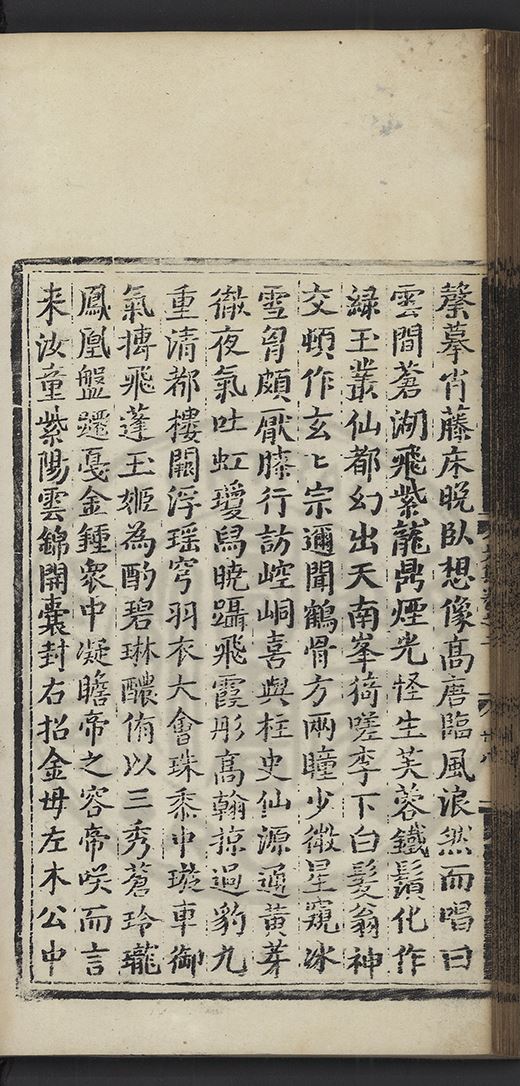 槩摹肖藤床晚臥想像高唐臨風浪然而唱曰
雲間蒼湖飛紫龍鼎煙光怪生芙蓉鐵鬚化作
綠玉叢仙都幻出天南峯猗嗟李下白髮翁神
交頓作玄〻宗邇聞鶴骨方兩瞳少微星窺冰
雪胷頗厭膝行訪崆峒喜與柱史仙源通黃芽
徹夜氣吐虹瓊舄曉躡飛霞彤高翰掠過豹九
重清都樓闕浮瑶穹羽衣大會珠黍中璇車御
氣摶飛蓬玉姬為酌碧琳醲侑以三秀蒼玲瓏
鳳凰盤躚戞金鍾衆中凝瞻帝之容帝咲而言
来汝童紫陽雲錦開囊封右招金毋左木公中